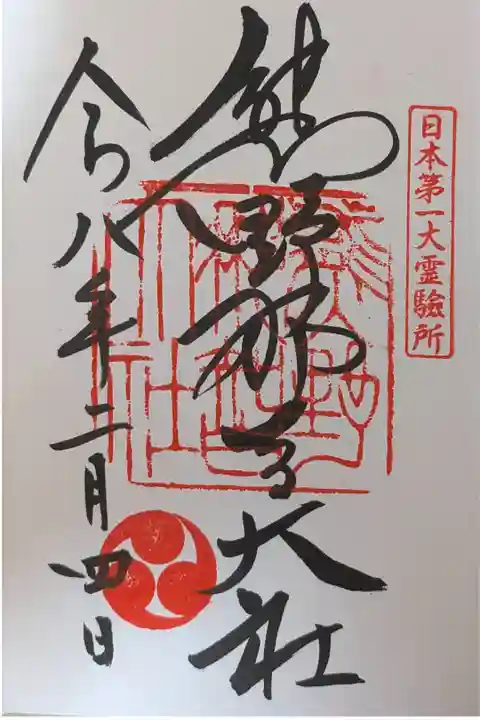 日本第一大霊驗所
熊野那智大社
令八年二月四日